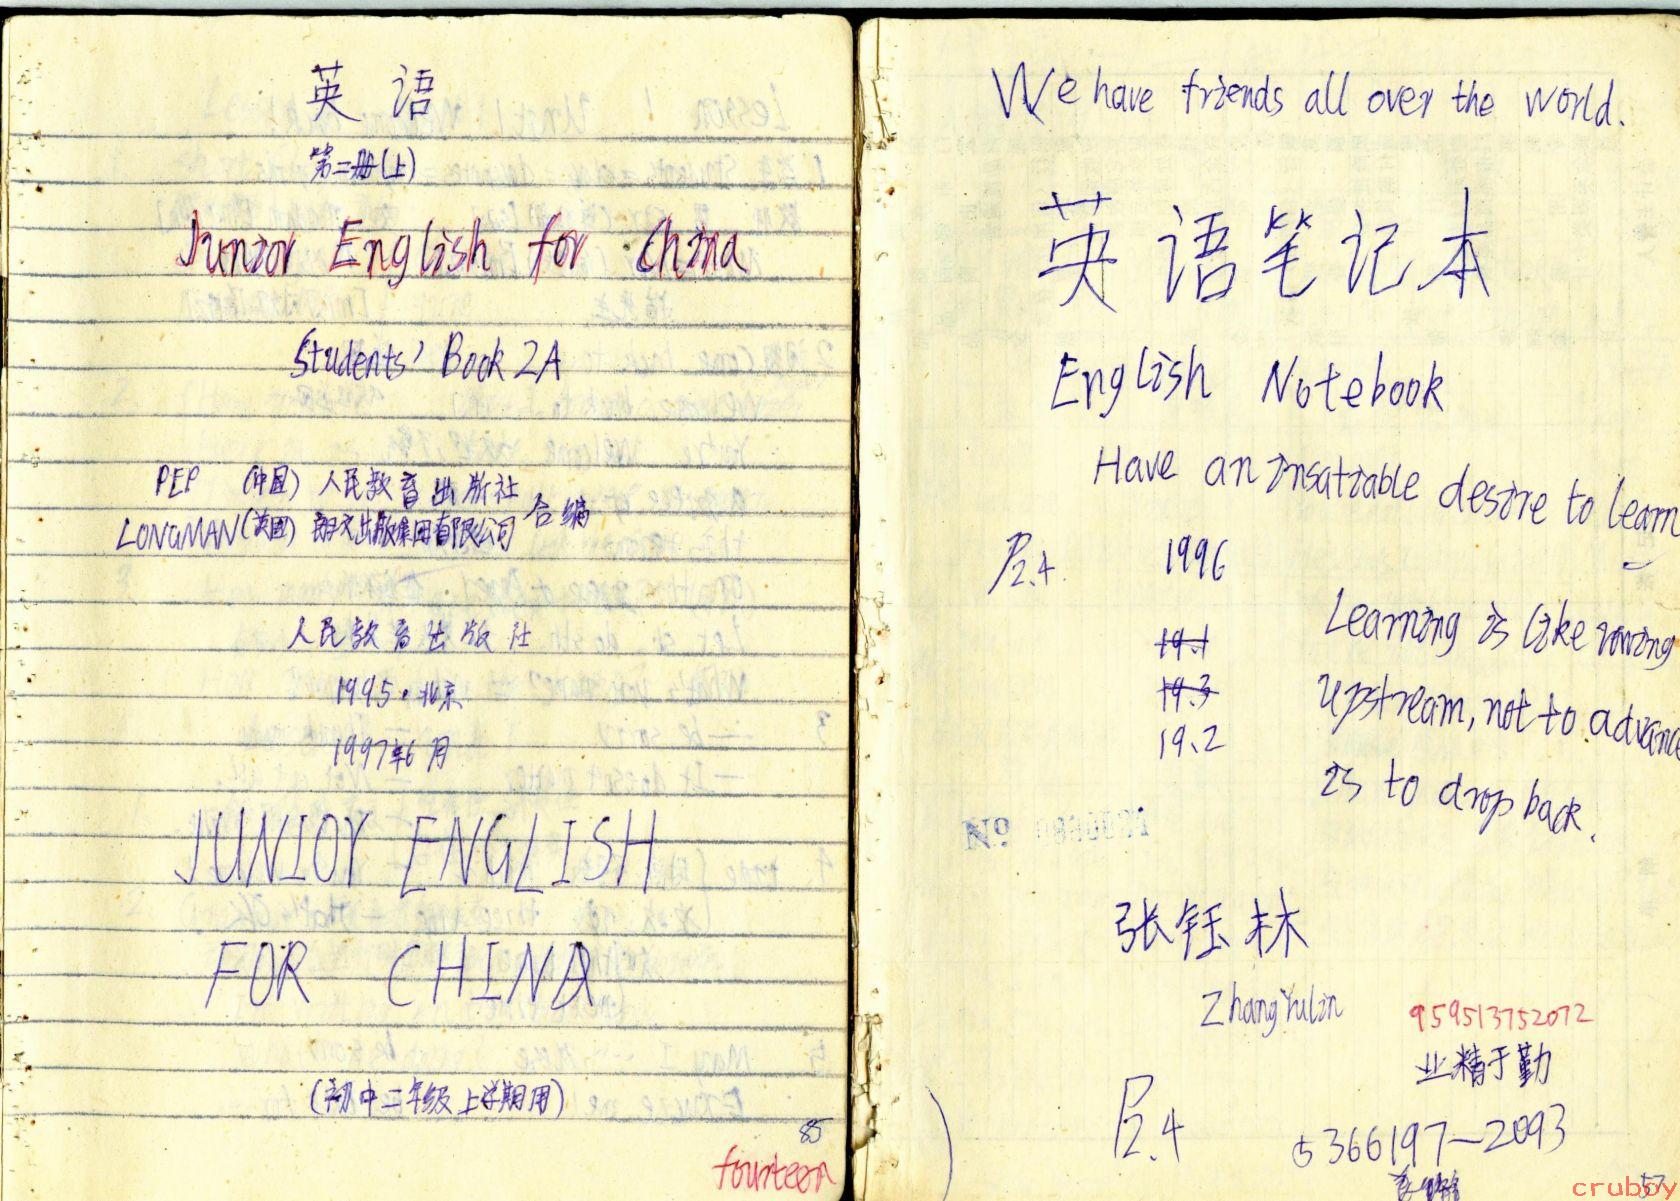 英 语
第二册(上)
Junior English for China
Students' Book 2A
PEP (中国) 人民教育出版社
LONGMAN (英国) 朗文出版集团有限公司 合编
人民教育出版社
1995·北京
1997年6月
JUNIOY ENGLISH
FOR CHINA
(初中二年级上学期用)
85
fourteen
We have friends all over the world.
英语笔记本
English Notebook
Have an insatiable desire to learn
P2.4. 1996
Learning is like rowing
19.1
19.3
upstream, not to advance
19.2
is to drop back.
张钰林
ZhangYulin
959513752072
业精于勤
P2.4
5366197—2093
57
cruboy